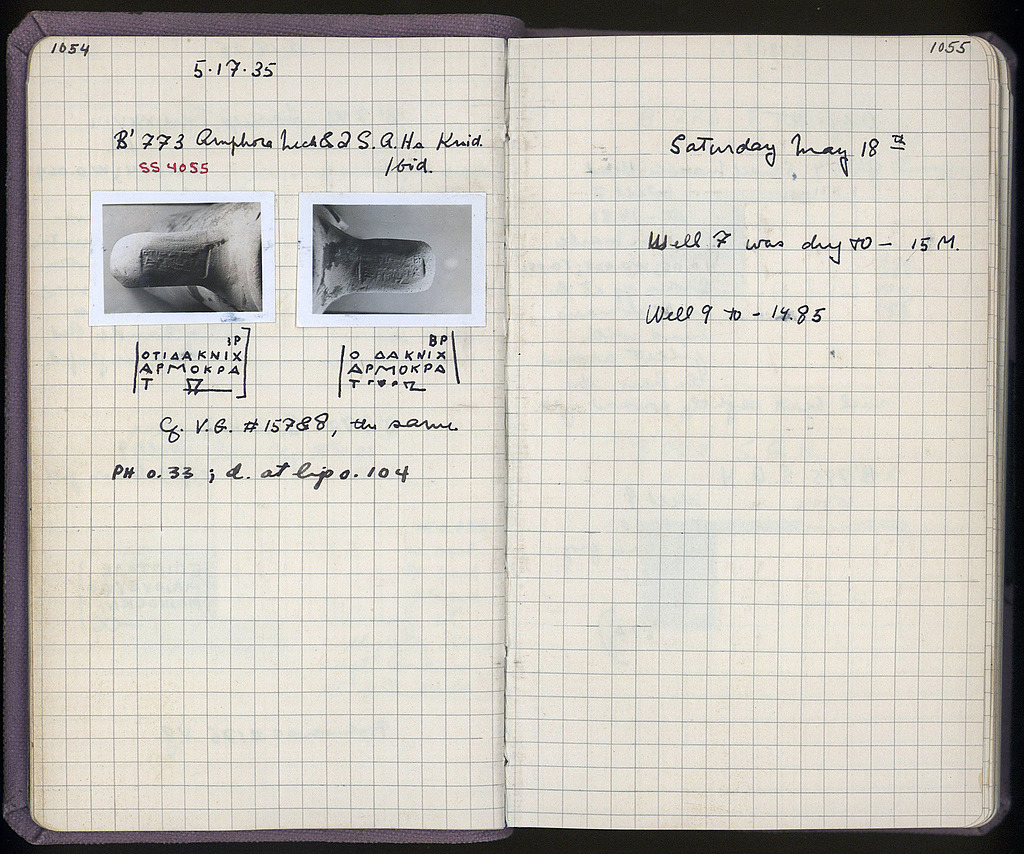 1054
5·17·35
B' 773 Amphora neck & 2 S.A.Ha Knid.
SS 4055
Ibid.
ΒΡ
ΟΤΙΔΑΚΝΙΧ
ΑΡΜΟΚΡΑ
Τ
ΒΡ
Ο ΔΑΚΝΙΧ
ΑΡΜΟΚΡΑ
Τ
Cf. V.G. #15788, the same
PH 0.33 ; d. at lip 0.104
1055
Saturday May 18th
Well 7 was dry to - 15 M.
Well 9 to - 14.85